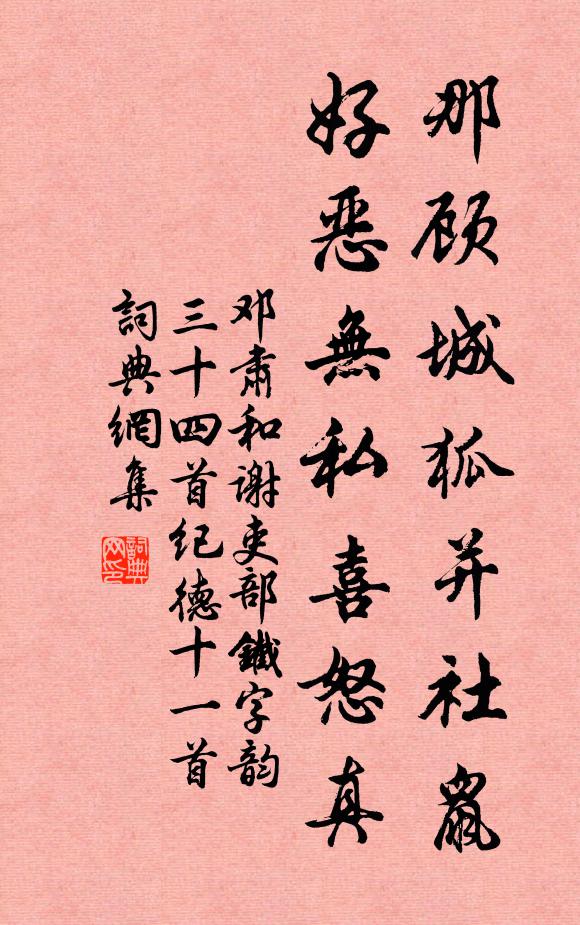 那顾城狐并社鼠
好恶無私喜怒真
邓肃和谢吏部鐵字韵
三十四首纪德十一首
詞典網集
詞典网印